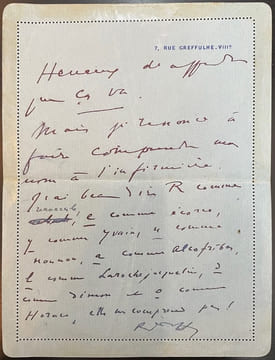 7, RUE GREFFULHE. VIIIe
Heureux de apprendre
que ça va.
Mais je renonce à
faire comprendre mon
nom à l'infirmière.
J'ai beau dire R comme
renoncule, e comme
y comme Yvain, n comme
a comme Alcofribas,
l comme Larochejaquelein, d
comme et o comme
Horace, elle ne comprend pas!